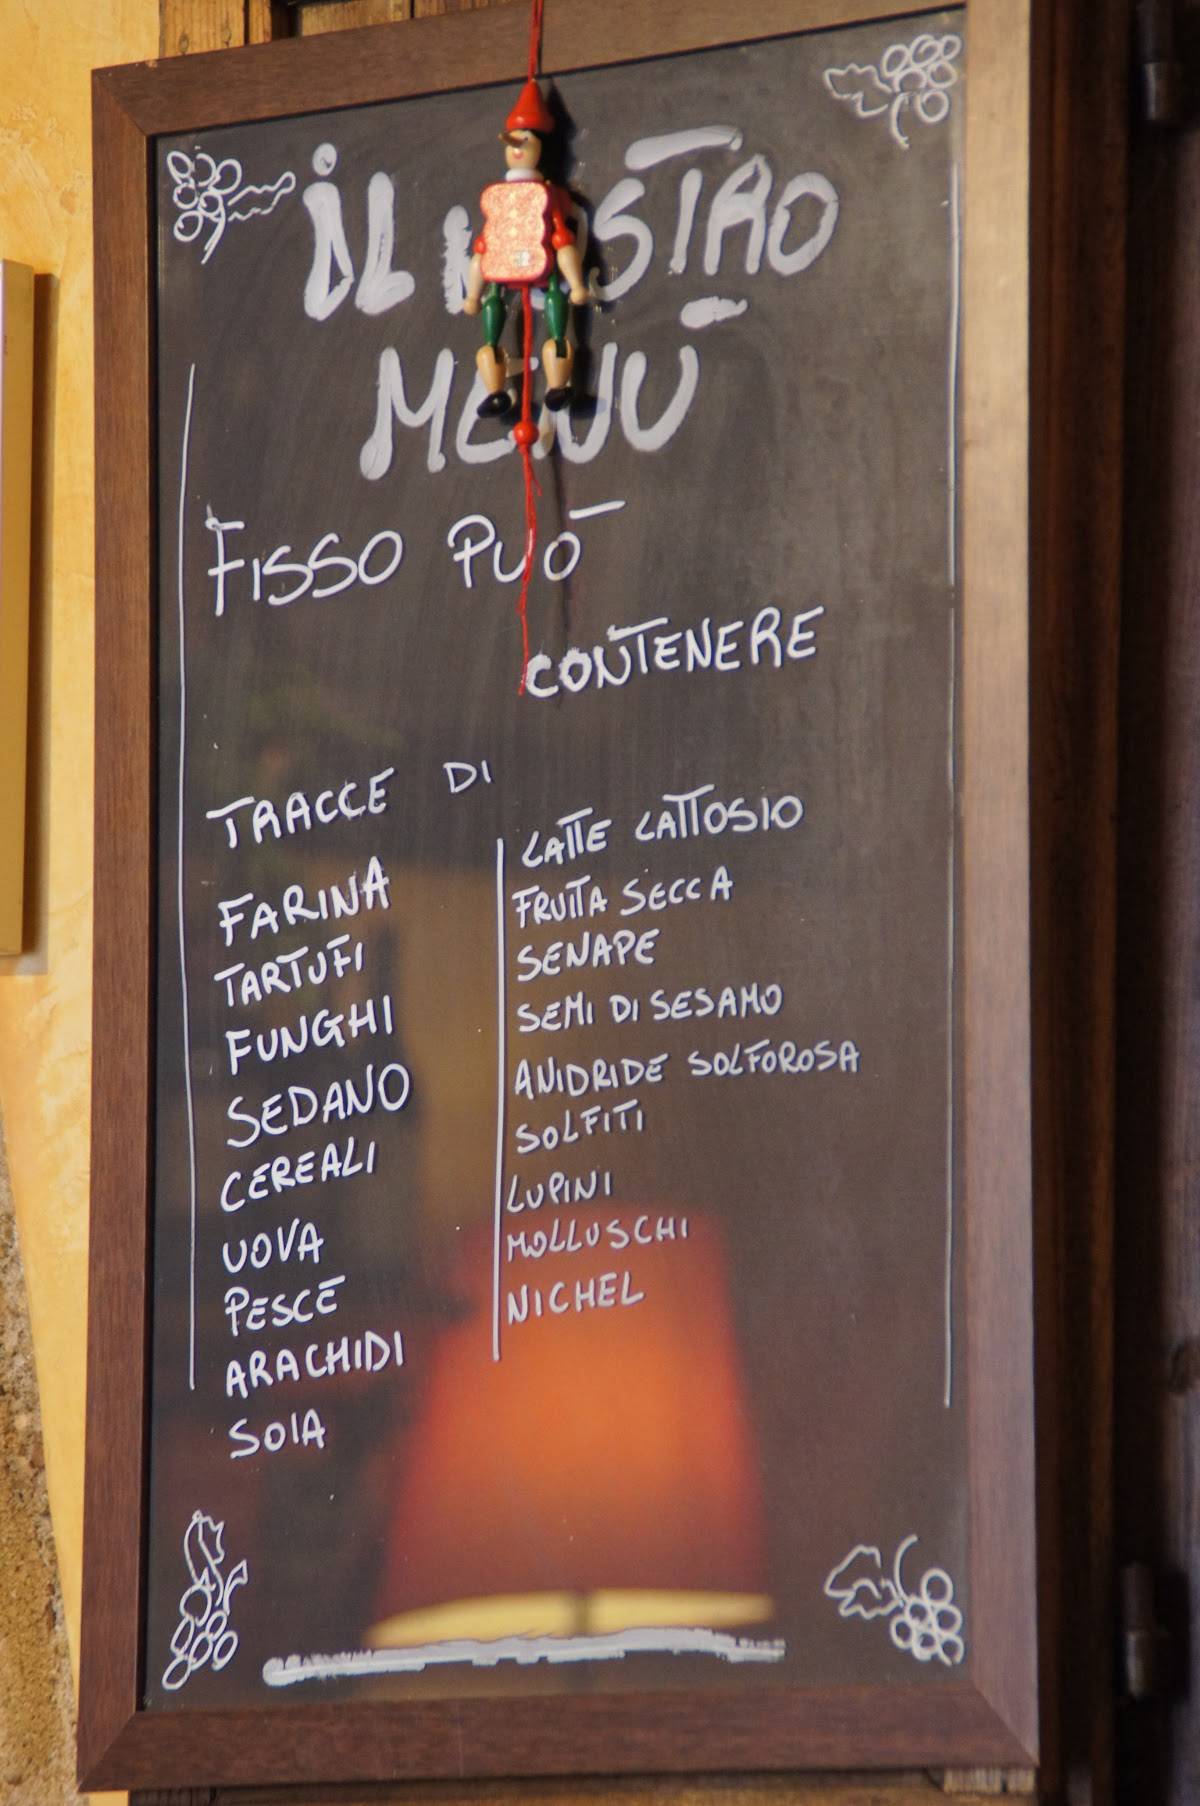 iL NOSTRO
MENÙ
FISSO PUÒ
CONTENERE
TRACCE DI
FARINA
TARTUFI
FUNGHI
SEDANO
CEREALI
UOVA
PESCE
ARACHIDI
SOIA
LATTE LATTOSIO
FRUTTA SECCA
SENAPE
SEMI DI SESAMO
ANIDRIDE SOLFOROSA
SOLFITI
LUPINI
MOLLUSCHI
NICHEL